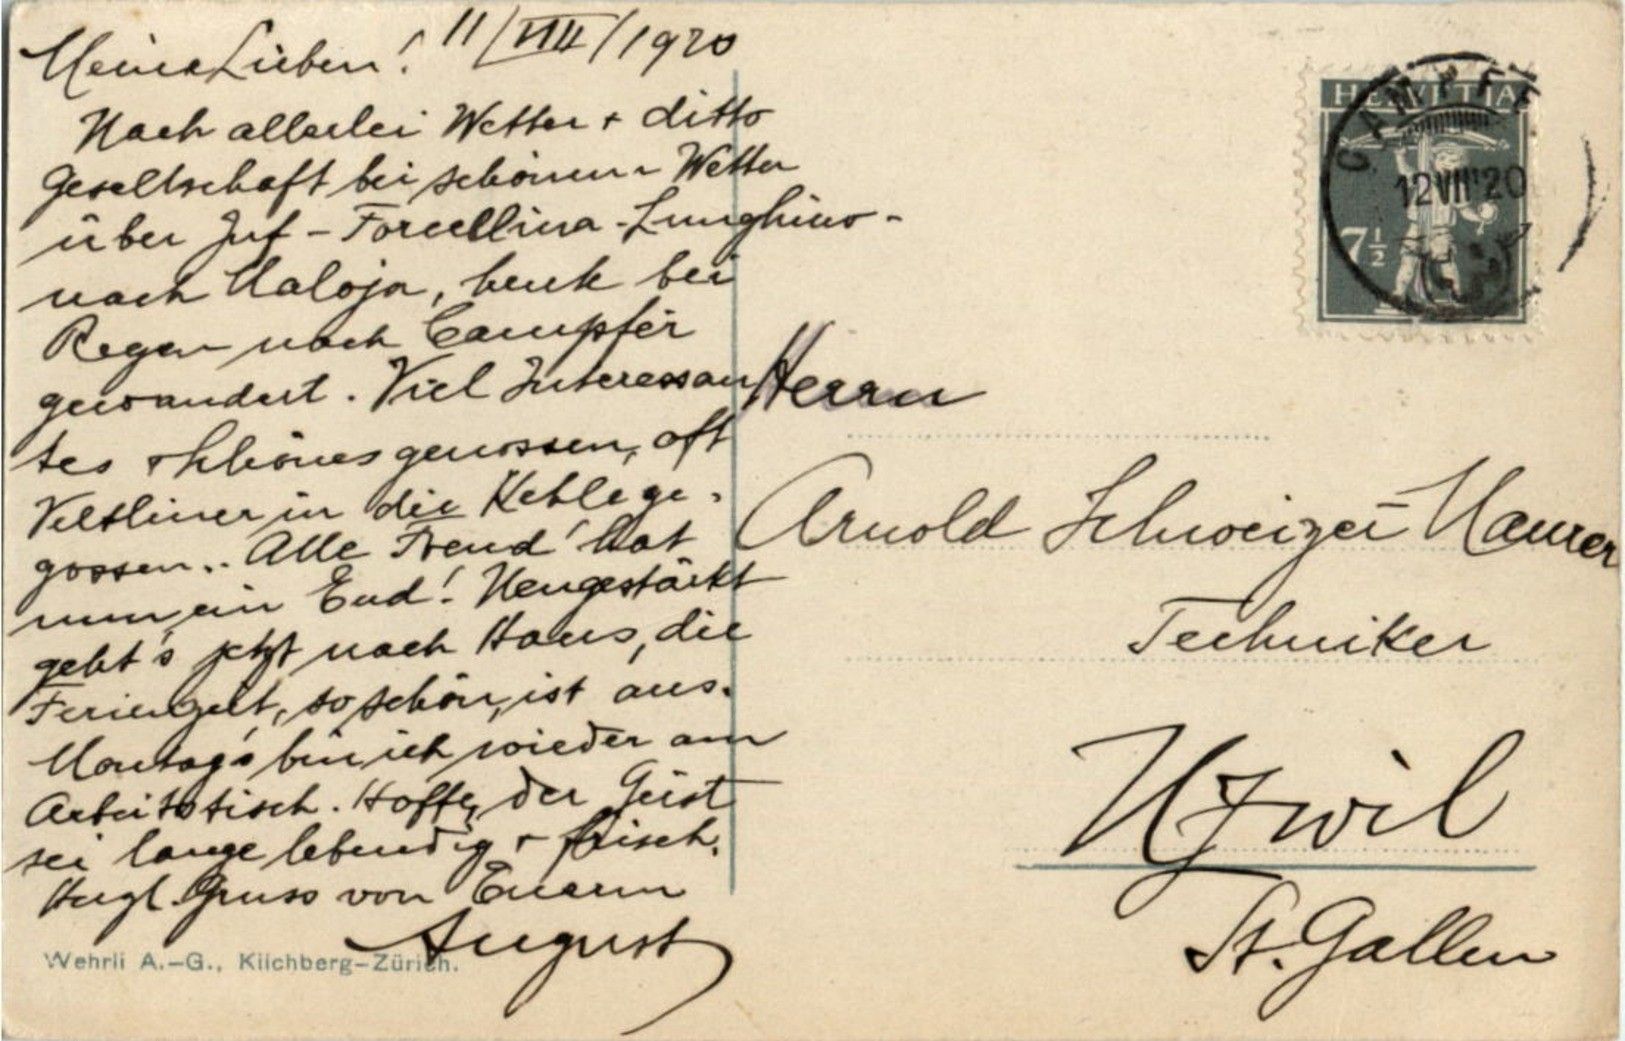 Meine Lieben! 11/VIII/1920
Nach allerlei Wetter + ditto
Gesellschaft bei schönem Wetter
über Juf - Forcellina - Lunghino -
nach Maloja, heute bei
Regen nach Campfèr
gewandert. Viel Interessan
tes + Schönes genossen, oft
Veltliner in die Kehle ge-
gossen.. Alle Freud' hat
nun ein End! Neugestärkt
geht's jetzt nach Haus, die
Ferienzeit, so schön, ist aus.
Montag's bin ich wieder am
Arbeitstisch. Hoffe, der Geist
sei lange lebendig + frisch.
Herzl. Gruss von Euerm
August
Wehrli A.-G., Kilchberg-Zürich.
HELVETIA
CAMPFER
12 VII 20
7½
Herrn
Arnold Schweizer-Maurer
Techniker
Uzwil
St. Gallen